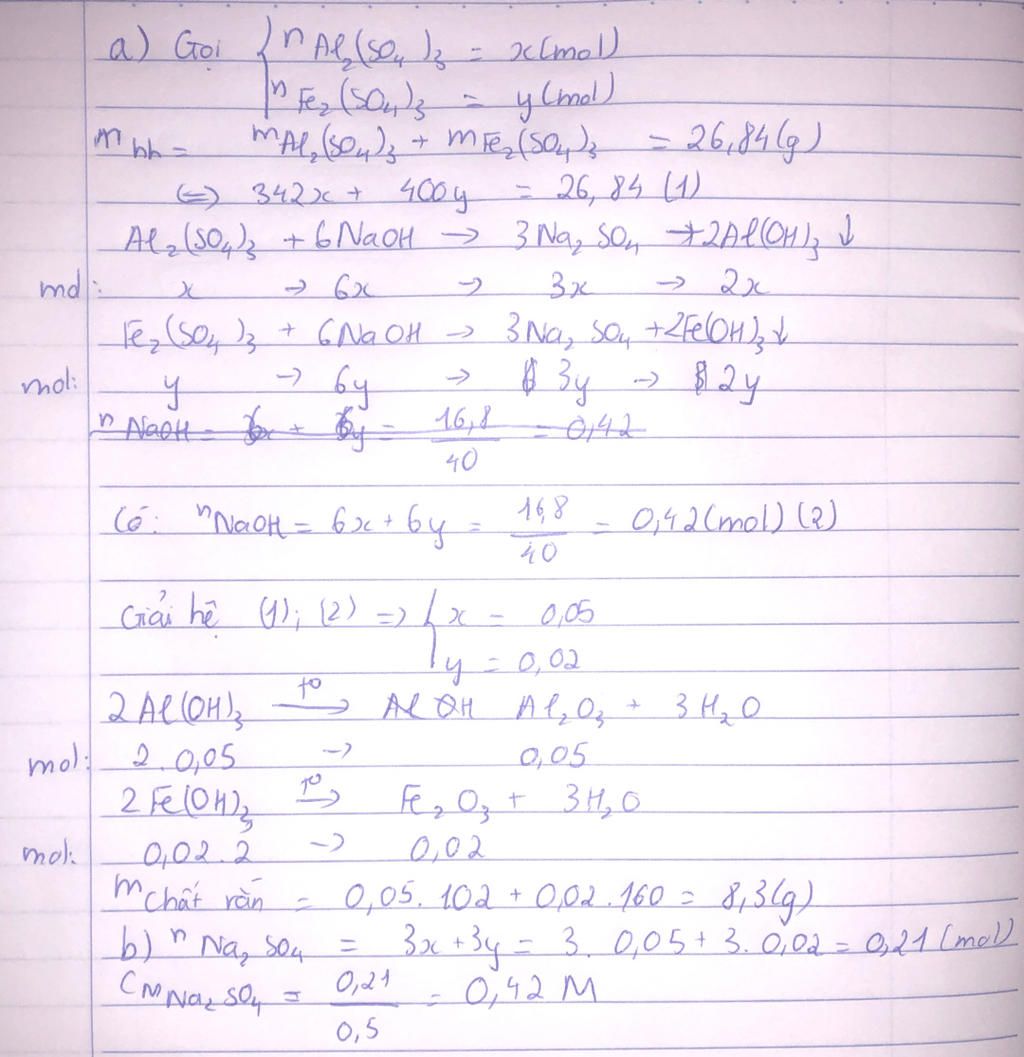 a) Gọi { nAl₂(SO₄)₃ = x(mol)
nFe₂(SO₄)₃ = y(mol)
mhh = mAl₂(SO₄)₃ + mFe₂(SO₄)₃ = 26,84(g)
⇔ 342x + 400y = 26,84 (1)
Al₂(SO₄)₃ + 6NaOH → 3Na₂SO₄ + 2Al(OH)₃ ↓
mol: x → 6x → 3x → 2x
Fe₂(SO₄)₃ + 6NaOH → 3Na₂SO₄ + 2Fe(OH)₃ ↓
mol: y → 6y → 3y → 2y
nNaOH = 6x + 6y = 16,8/40 = 0,42
Có: nNaOH = 6x + 6y = 16,8/40 = 0,42(mol) (2)
Giải hệ (1); (2) => { x = 0,05
y = 0,02
2Al(OH)₃ t°→ Al OH Al₂O₃ + 3H₂O
mol: 2.0,05 → 0,05
2Fe(OH)₃ t°→ Fe₂O₃ + 3H₂O
mol: 0,02.2 → 0,02
mchất rắn = 0,05.102 + 0,02.160 = 8,3(g)
b) nNa₂SO₄ = 3x + 3y = 3.0,05 + 3.0,02 = 0,21(mol)
CM Na₂SO₄ = 0,21/0,5 = 0,42 M